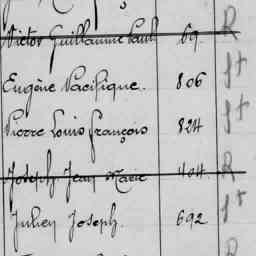 Victor Guillaume Paul 69. R
Eugène Pacifique. 806
Pierre Louis François 824
Joseph Jean Marie 404. R
Julien Joseph. 692